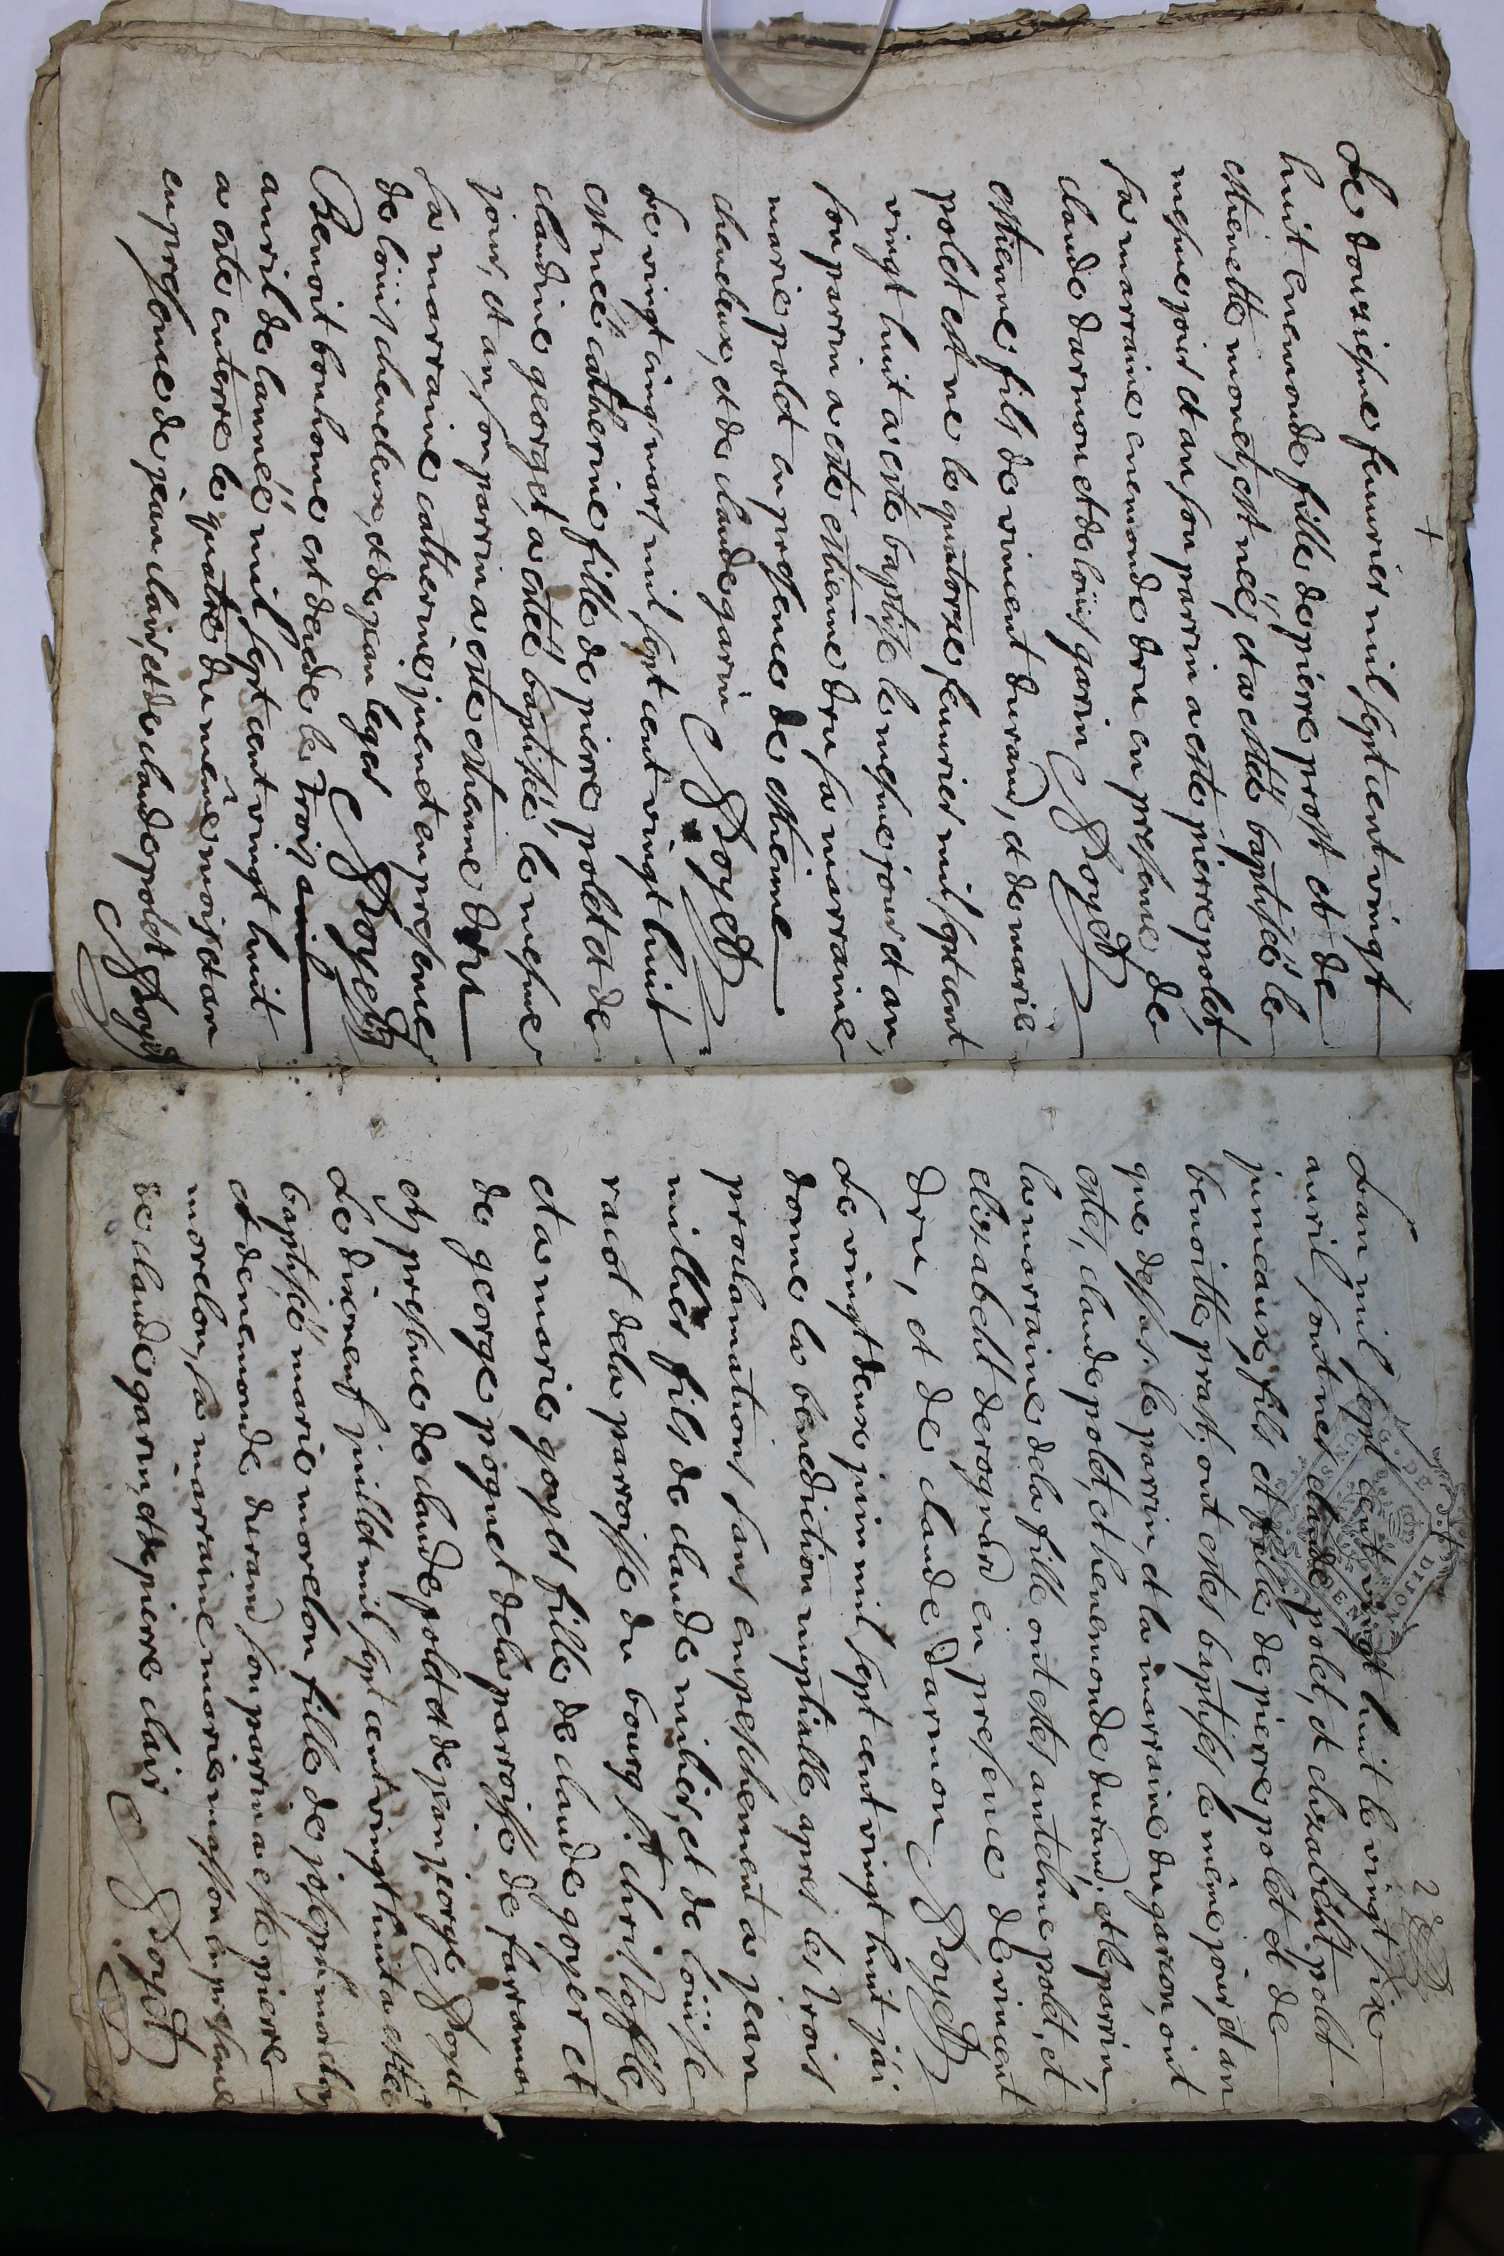 +
Le dousiesme feuurier mil sept cent vingt
huit enemonde fille de pierre prost et de
estienette monet, est neé, et a estéé baptiséé le
mesme jour et an son parrin a este pierre polet,
sa marraine enemonde dru en presence de
claude darmon et de loüis garin Doyet
estienne fils de vincent durand, et de marie
polet est ne le quatorse feuurier mil sept cent
vingt huit a esté baptise le mesme jour et an,
son parrin a esté estienne dru sa marraine
marie polet en presence de estienne
cheueleux, et de claude garin Doyet
Le vingt cinq mars mil sept cent vingt huit
est néé catherine fille de pierre polet et de
claudine george, et a estéé baptiséé le mesme
jour, et an son parrin a este estienne dru
sa marraine catherine juenet en presence
de loüis cheueleux, et de jean leger Doyet
Benoit bonhome est decede le trois auril
auril de lannéé mil sept cent vingt huit
a este enterre le quatre du même mois et an
en presence de jean clair, et de claude polet Doyet
2
DIJON
Lan mil sept cent vingt huit le vingt six
auril sont nes claude polet, et elizabeht polet
jumeaux fils et fille de pierre polet et de
benoitte prast, ont estes baptises le même jour, et an
que dessus. le parrin, et la marraine du garcon, ont
estes, claude polet, et henemonde durand; et le parrin,
la marraine de la fille ont estes antelme polet, et
elizabeht derognard en presence de vincent
dru, et de claude darmon Doyet
Le vingt deux juin mil sept cent vingt huit jái
donne la benediction nuptialle, apres les trois
proclamations sans empeschement a jean
millier fils de claude milier, et de loüise
racot de la parroisse du bourg st christofle
et a marie goyer fille de claude goyer et
de george poguet de la parroisse de
et presence de claude polet et de jean jorge Doyet
Le dixneuf juillet mil sept cent vingt huit a estéé
baptiséé marie morelon fille de joseph morelon
et denemonde durand son parrin a este pierre
morelon, sa marraine marie masson en presence
de claude garin, et de pierre clair Doyet